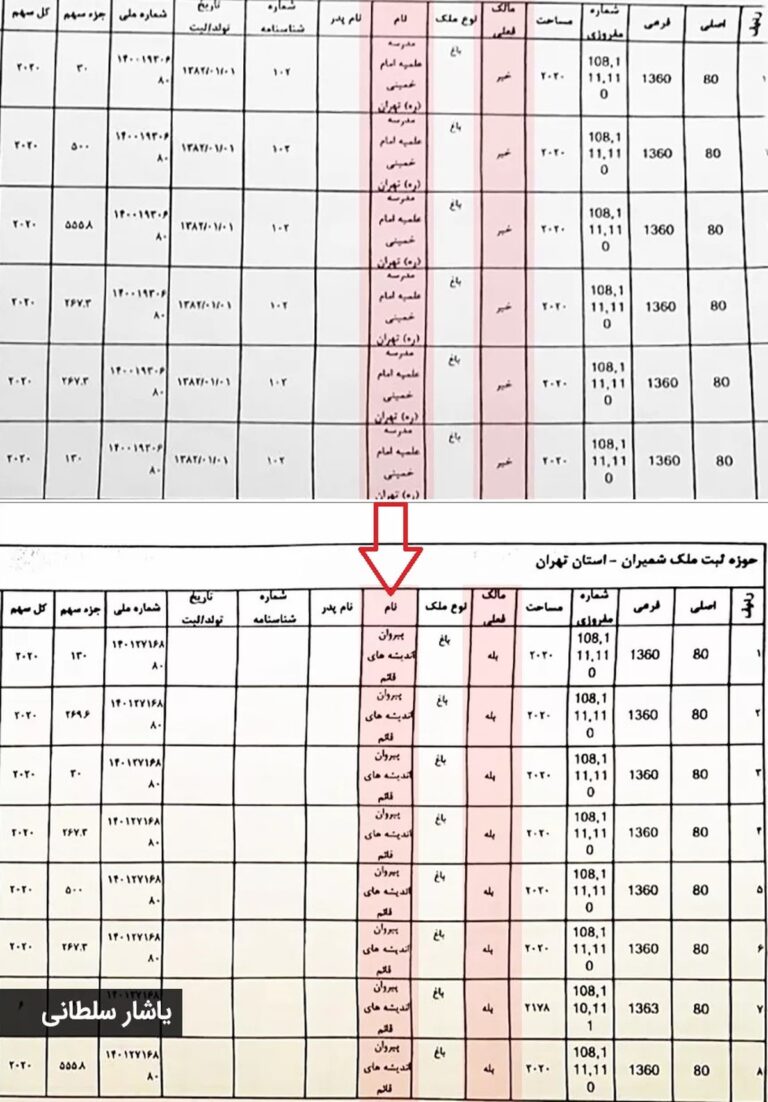 ردیف اصلی فرعی شماره مفروزی مساحت مالک فعلی نوع ملک نام نام پدر شماره شناسنامه تاریخ تولد/ثبت شماره ملی جزء سهم کل سهم
۱ 80 1360 108,111,110 ۲۰۲۰ خیر باغ مدرسه علمیه امام خمینی (ره) تهران ۱۰۲ ۱۳۸۲/۰۱/۰۱ ۱۴۰۰۱۹۳۰۶۸۰ ۳۰ ۲۰۲۰
80 1360 108,111,110 ۲۰۲۰ خیر باغ مدرسه علمیه امام خمینی (ره) تهران ۱۰۲ ۱۳۸۲/۰۱/۰۱ ۱۴۰۰۱۹۳۰۶۸۰ ۵۰۰ ۲۰۲۰
80 1360 108,111,110 ۲۰۲۰ خیر باغ مدرسه علمیه امام خمینی (ره) تهران ۱۰۲ ۱۳۸۲/۰۱/۰۱ ۱۴۰۰۱۹۳۰۶۸۰ ۵۵۵.۸ ۲۰۲۰
80 1360 108,111,110 ۲۰۲۰ خیر باغ مدرسه علمیه امام خمینی (ره) تهران ۱۰۲ ۱۳۸۲/۰۱/۰۱ ۱۴۰۰۱۹۳۰۶۸۰ ۲۶۷.۳ ۲۰۲۰
80 1360 108,111,110 ۲۰۲۰ خیر باغ مدرسه علمیه امام خمینی (ره) تهران ۱۰۲ ۱۳۸۲/۰۱/۰۱ ۱۴۰۰۱۹۳۰۶۸۰ ۲۶۷.۳ ۲۰۲۰
80 1360 108,111,110 ۲۰۲۰ خیر باغ مدرسه علمیه امام خمینی (ره) تهران ۱۰۲ ۱۳۸۲/۰۱/۰۱ ۱۴۰۰۱۹۳۰۶۸۰ ۱۳۰ ۲۰۲۰
حوزه ثبت ملک شمیران - استان تهران
ردیف اصلی فرعی شماره مفروزی مساحت مالک فعلی نوع ملک نام نام پدر شماره شناسنامه تاریخ تولد/ثبت شماره ملی جزء سهم کل سهم
۱ 80 1360 108,111,110 ۲۰۲۰ بله باغ پیروان اندیشه های قائم ۱۴۰۱۲۷۱۶۸۸۰ ۱۳۰ ۲۰۲۰
۲ 80 1360 108,111,110 ۲۰۲۰ بله باغ پیروان اندیشه های قائم ۱۴۰۱۲۷۱۶۸۸۰ ۲۶۹.۶ ۲۰۲۰
۳ 80 1360 108,111,110 ۲۰۲۰ بله باغ پیروان اندیشه های قائم ۱۴۰۱۲۷۱۶۸۸۰ ۳۰ ۲۰۲۰
۴ 80 1360 108,111,110 ۲۰۲۰ بله باغ پیروان اندیشه های قائم ۱۴۰۱۲۷۱۶۸۸۰ ۲۶۷.۳ ۲۰۲۰
۵ 80 1360 108,111,110 ۲۰۲۰ بله باغ پیروان اندیشه های قائم ۱۴۰۱۲۷۱۶۸۸۰ ۵۰۰ ۲۰۲۰
۶ 80 1360 108,111,110 ۲۰۲۰ بله باغ پیروان اندیشه های قائم ۱۴۰۱۲۷۱۶۸۸۰ ۲۶۷.۳ ۲۰۲۰
۷ 80 1363 108,110,111 ۲۱۷۸ بله باغ پیروان اندیشه های قائم
یاشار سلطانی
۸ 80 1360 108,111,110 ۲۰۲۰ بله باغ پیروان اندیشه های قائم ۱۴۰۱۲۷۱۶۸۸۰ ۵۵۵.۸ ۲۰۲۰